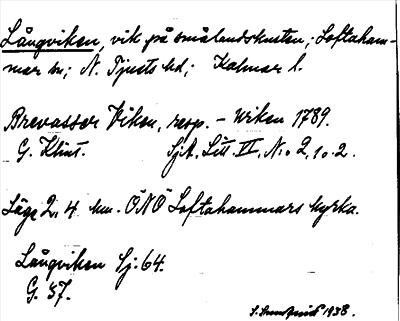 Långviken, vik på smålandskusten; Loftaham-
mar sn; N. Tjusts hd; Kalmar l.
Brevassor Viken, resp. - wiken 1789.
G. Klint. SjA, Litt. VI, N:o 2, 1 o. 2.
Läge 2,4 km. ÖNÖ Loftahammars kyrka.
Långviken Sj. 64.
G. 57.
1938.